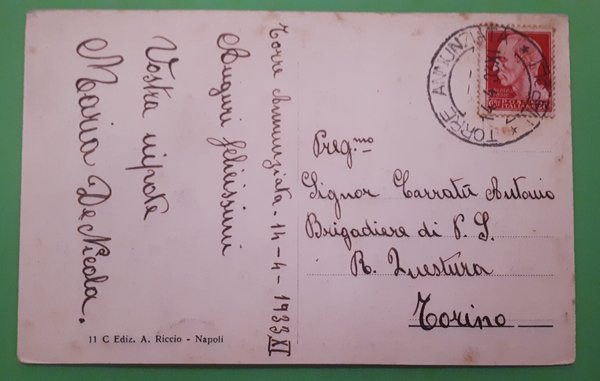 Torre Annunziata - 14-4-1933 XI
Auguri felicissimi
Vostra nipote
Maria De Nicola.
11 C Ediz. A. Riccio - Napoli
TORRE ANNUNZIATA
Preg.mo
Signor Carratù Antonio
Brigadiere di P. S.
R. Questura
Torino